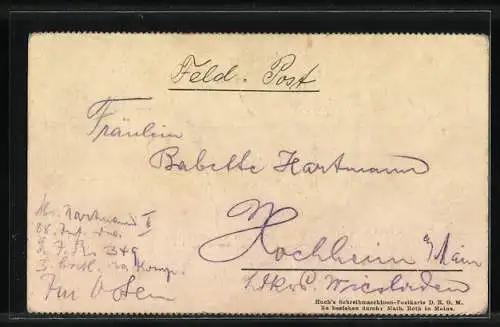 Feld-Post
Fräulein
Babette Hartmann
Hochheim a/Main
Wiesbaden
Hartmann II
I. R. 349
3. Komp.
Im Osten
Huch's Schreibmaschinen-Postkarte D. R. G. M.
Zu beziehen durch: Nath. Roth in Mainz.